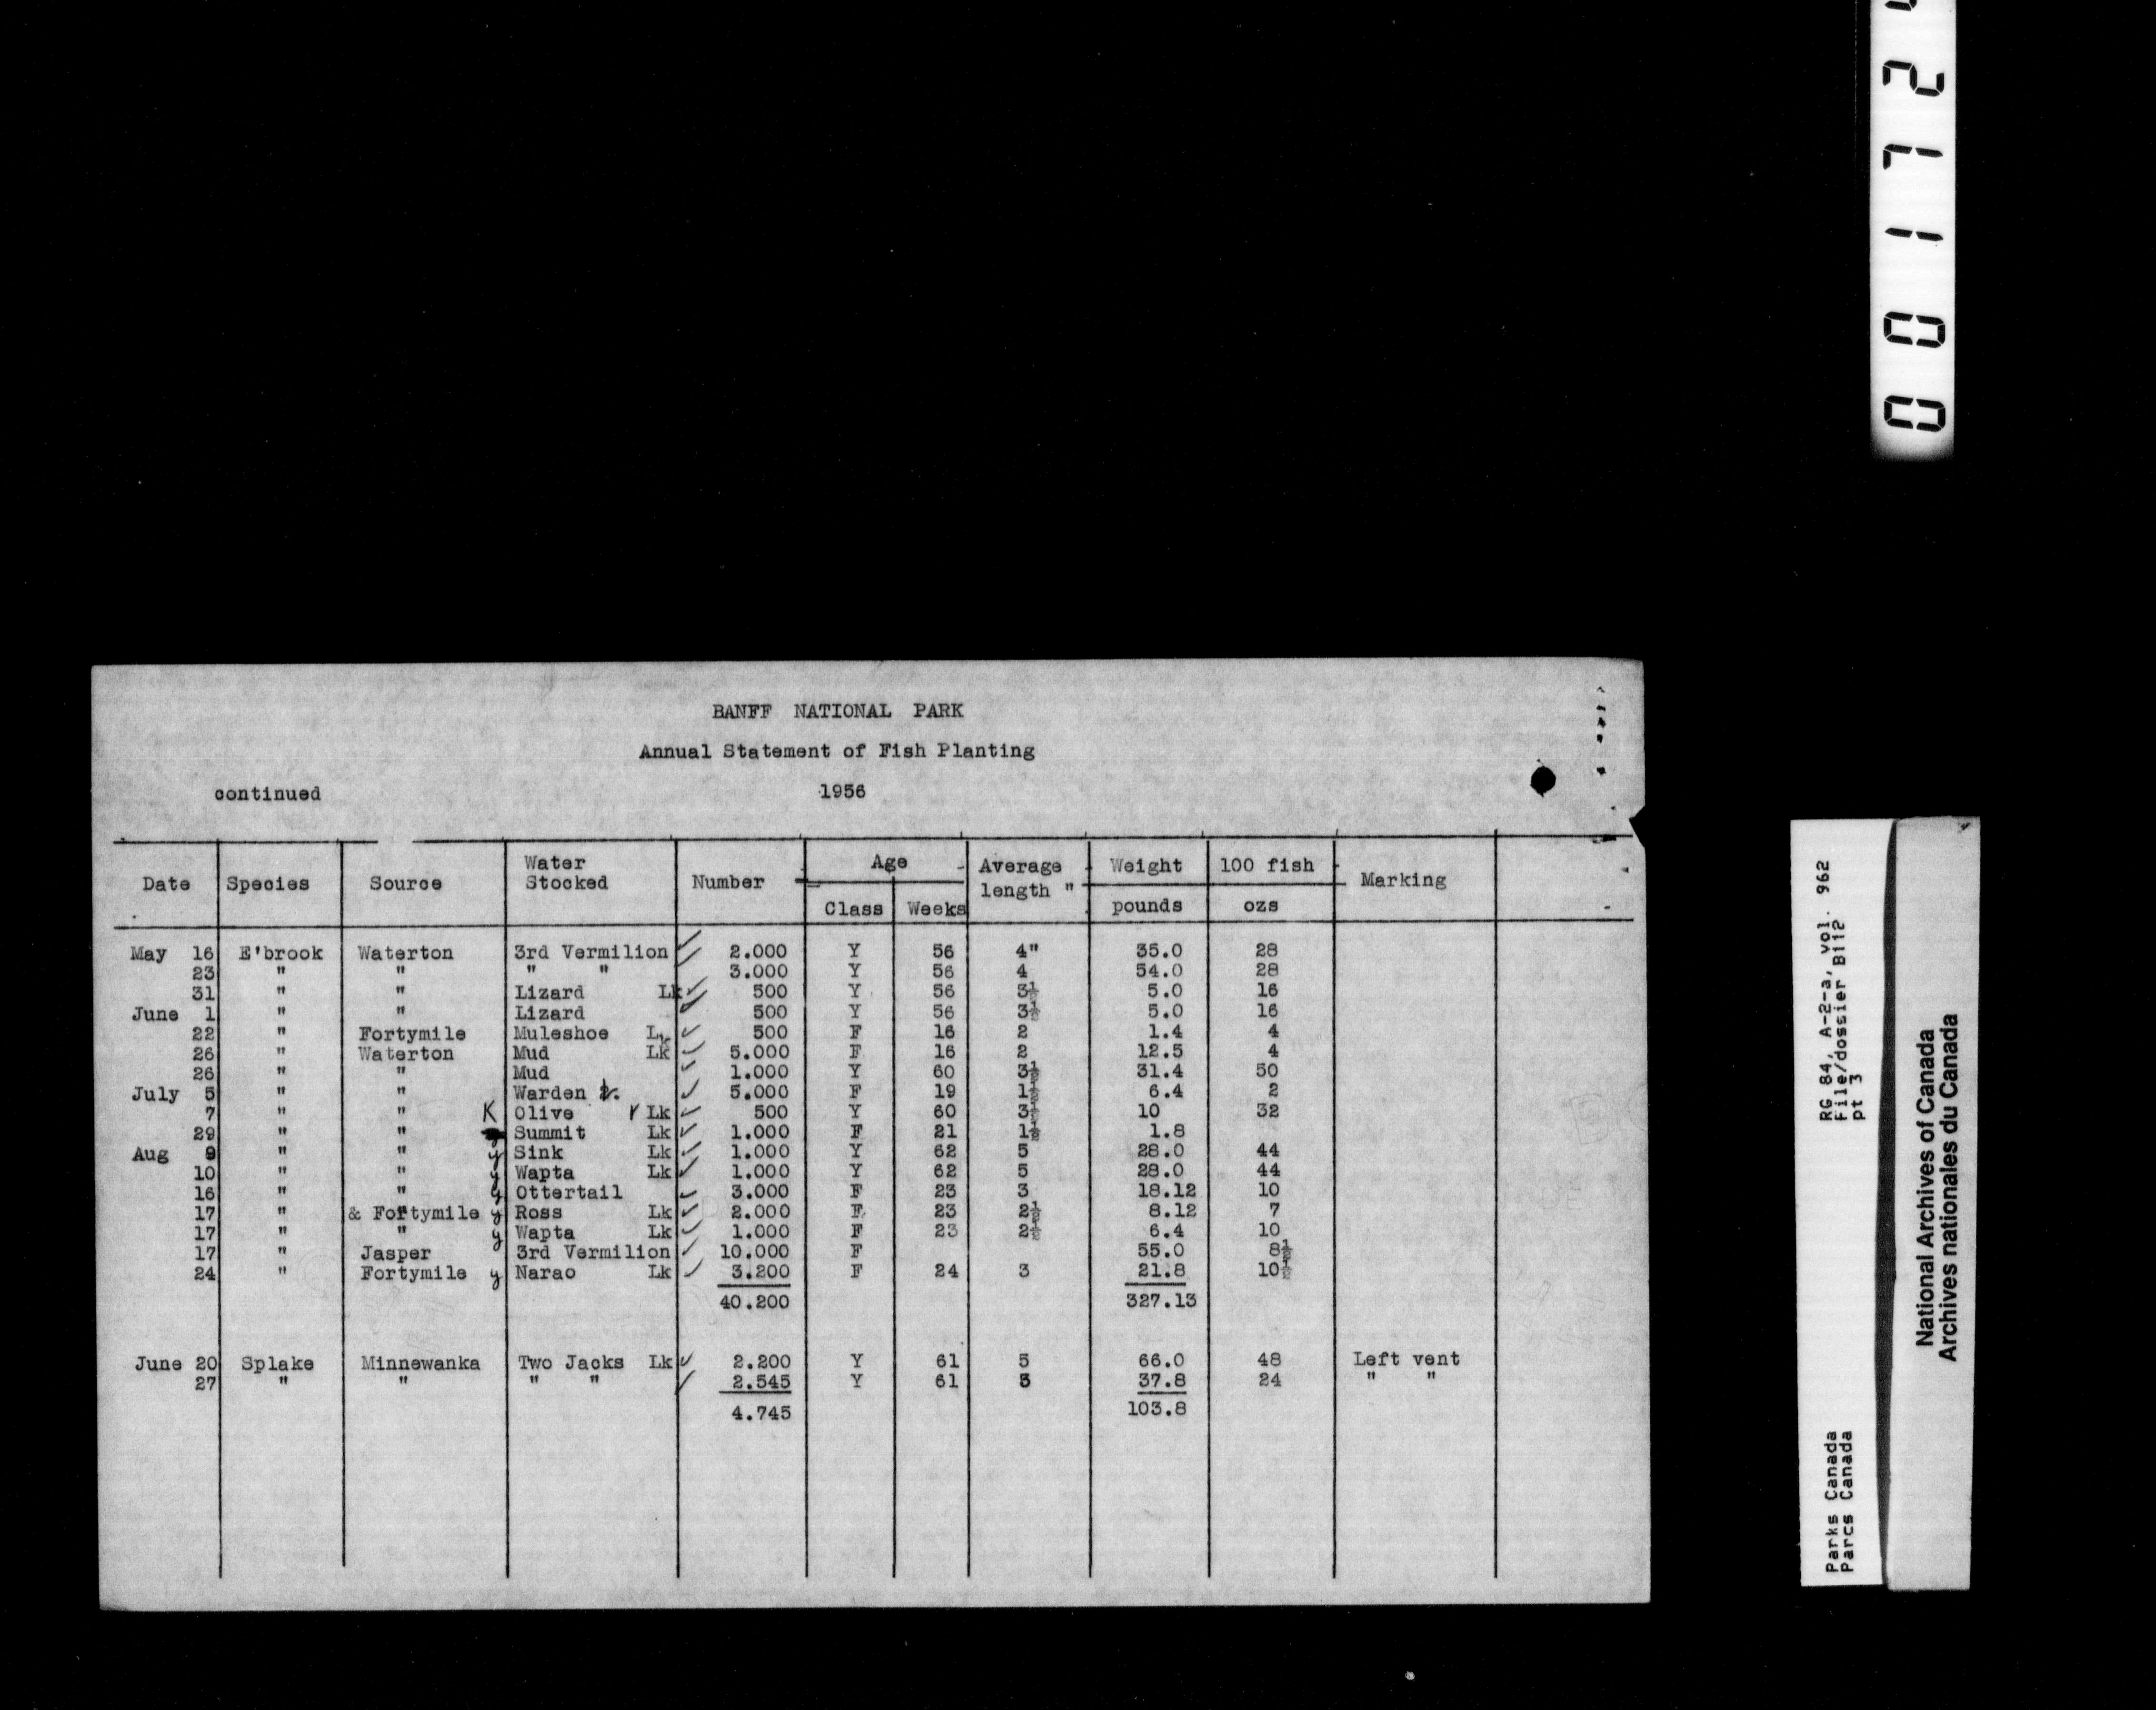 BANFF NATIONAL PARK
Annual Statement of Fish Planting
continued 1956
Date Species Source Water Stocked Number Age Class Weeks Average length " Weight pounds 100 fish ozs Marking
May 16 E'brook Waterton 3rd Vermilion 2.000 Y 56 4" 35.0 28
23 " " " " 3.000 Y 56 4 54.0 28
31 " " Lizard Lk 500 Y 56 3½ 5.0 16
June 1 " " Lizard 500 Y 56 3½ 5.0 16
22 " Fortymile Muleshoe Lk 500 F 16 2 1.4 4
26 " Waterton Mud Lk 5.000 F 16 2 12.5 4
26 " " Mud 1.000 Y 60 3½ 31.4 50
July 5 " " Warden 5.000 F 19 1½ 6.4 2
7 " " K Olive Lk 500 Y 60 3½ 10 32
29 " " Summit Lk 1.000 F 21 1½ 1.8
Aug 9 " " y Sink Lk 1.000 Y 62 5 28.0 44
10 " " y Wapta Lk 1.000 Y 62 5 28.0 44
16 " " y Ottertail 3.000 F 23 3 18.12 10
17 " & Fortymile y Ross Lk 2.000 F 23 2½ 8.12 7
17 " " y Wapta Lk 1.000 F 23 2½ 6.4 10
17 " Jasper 3rd Vermilion 10.000 F 55.0 8½
24 " Fortymile y Narao Lk 3.200 F 24 3 21.8 10½
40.200 327.13
June 20 Splake Minnewanka Two Jacks Lk 2.200 Y 61 5 66.0 48 Left vent
27 " " " " 2.545 Y 61 3 37.8 24 " "
4.745 103.8
00172
RG 84, A-2-a, vol. 962
File/dossier B112
pt 3
Parks Canada
Parcs Canada
National Archives of Canada
Archives nationales du Canada